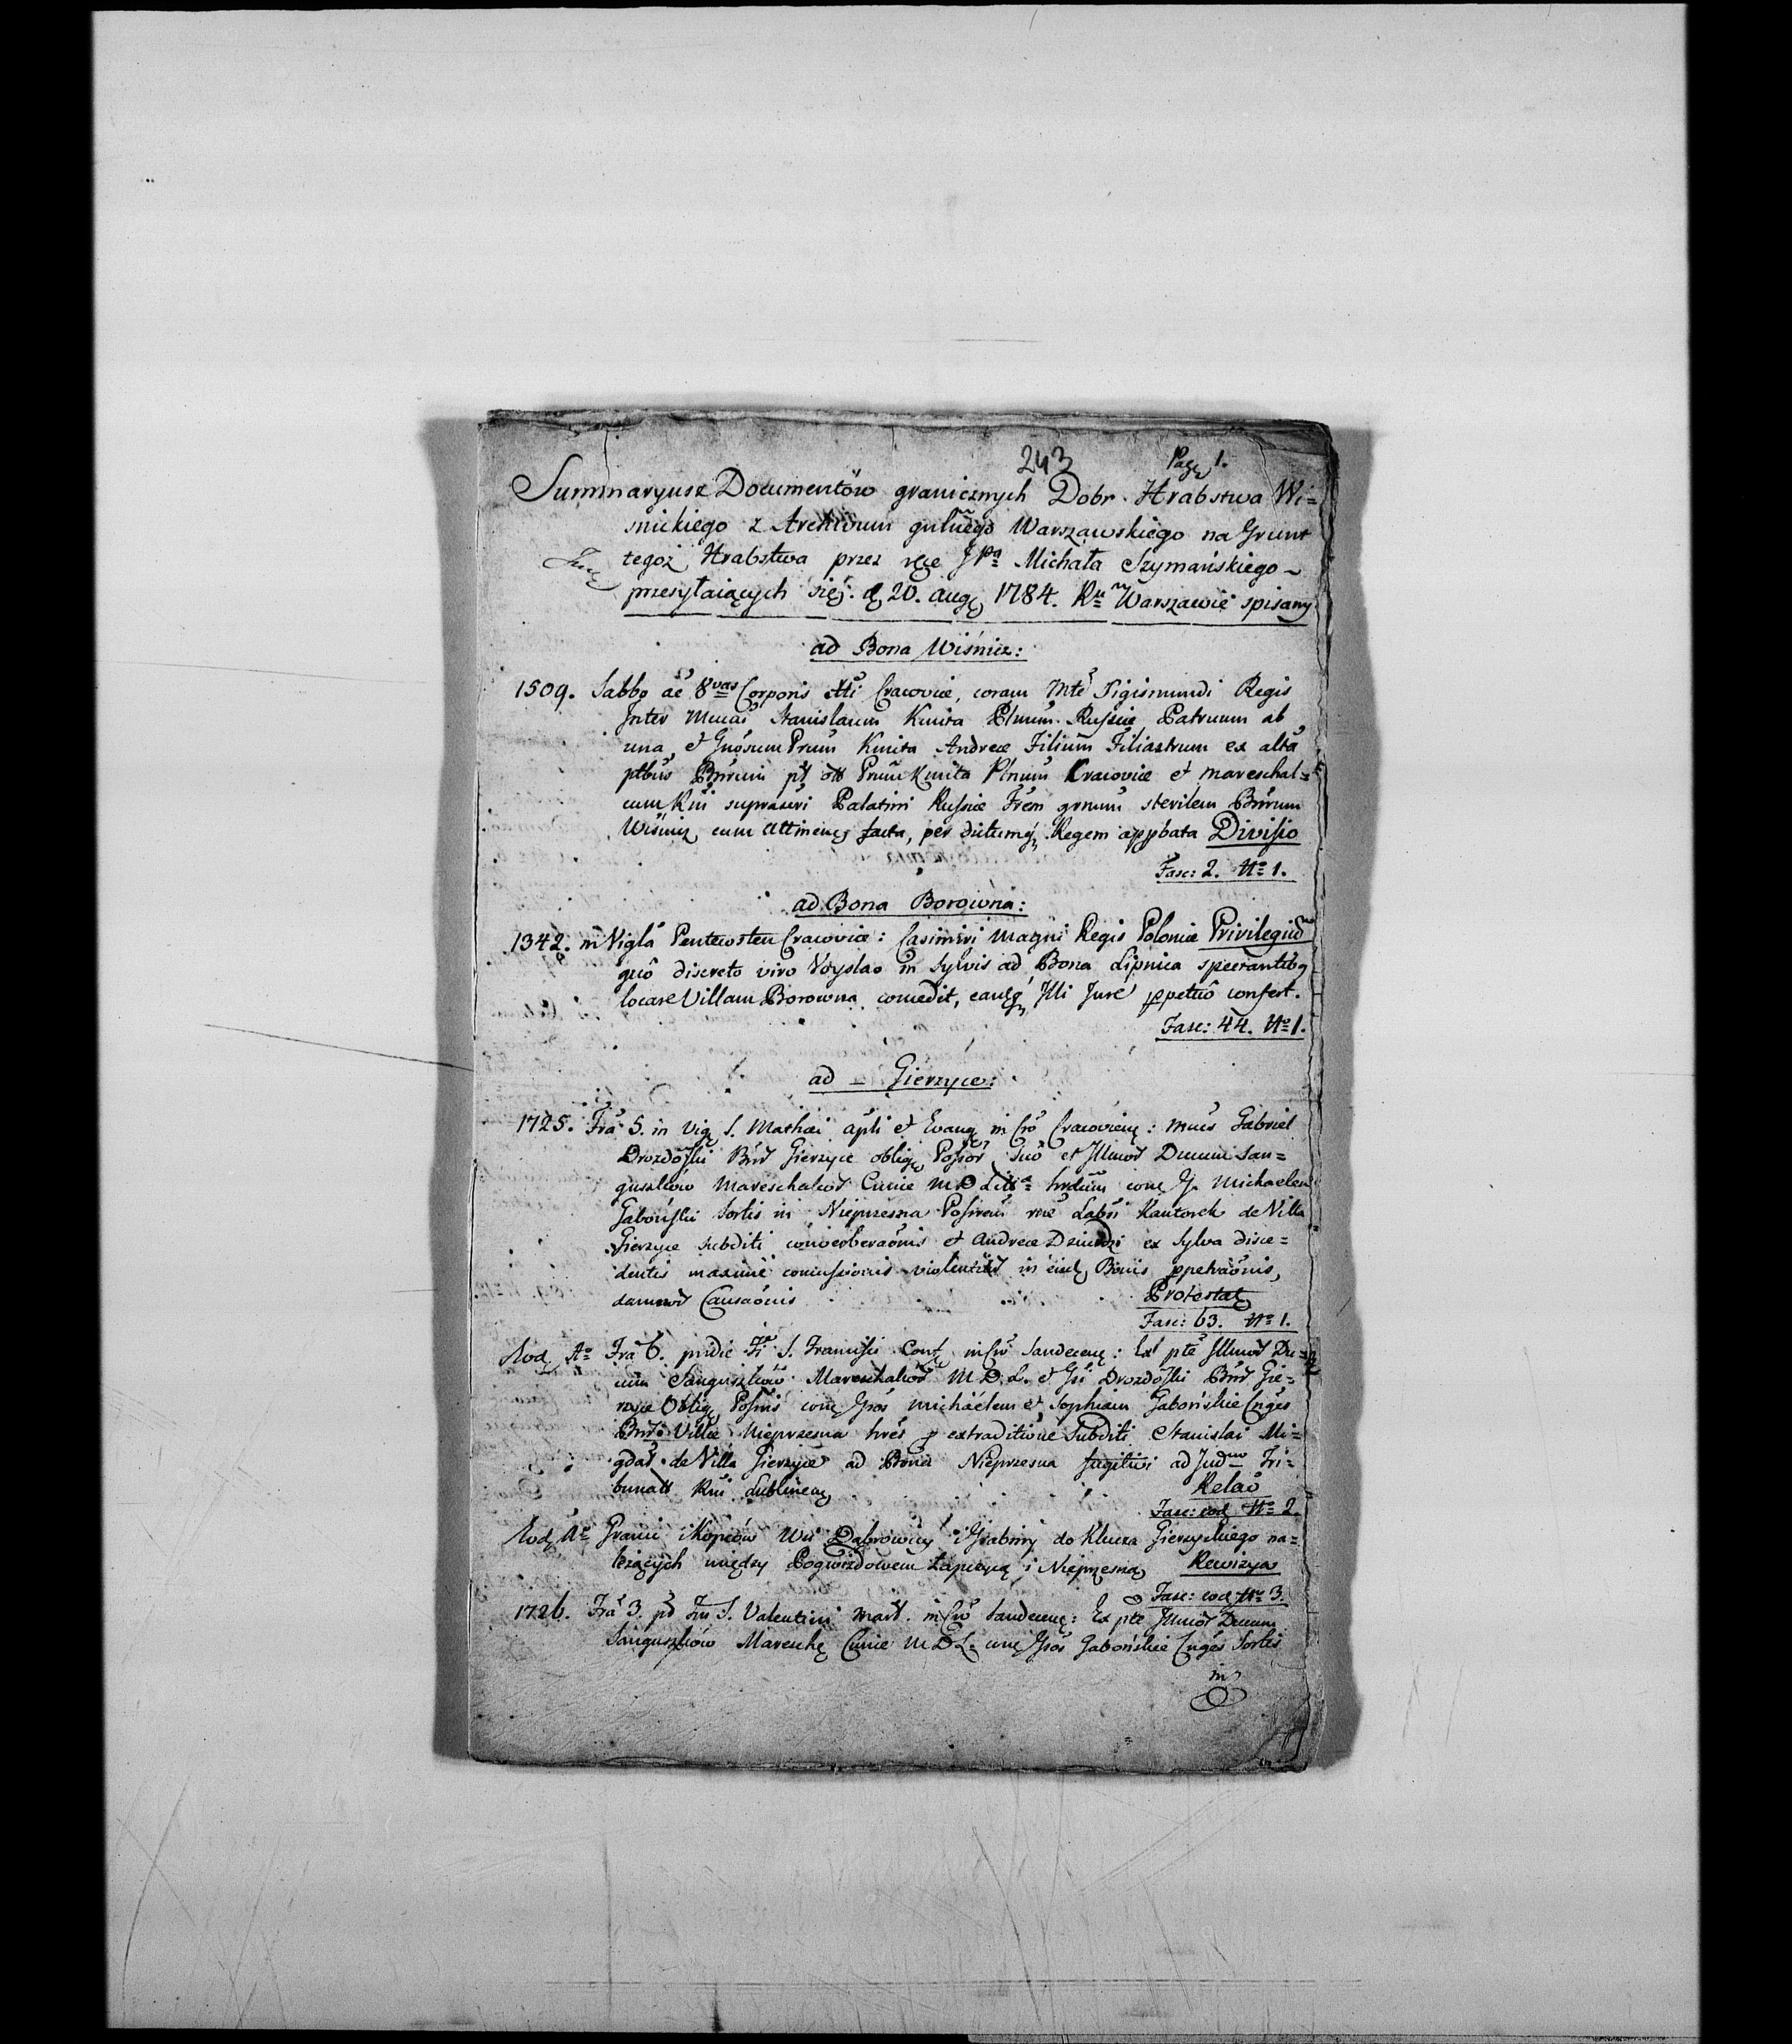 243 Pag. 1.
Summaryusz Documentów granicznych Dobr Hrabstwa Wi=
snickiego z Archivum gulnego Warszawskiego na Grunt
tegoż Hrabstwa przez ręce JPa Michała Szymańskiego
przesyłaiących się. d. 20. aug. 1784. Ru Warszawie spisany
ad Bona Wiśnicz:
1509. Sabbo 8vas Corporis Xti Cracoviæ, coram Mte Sigismundi Regis
Inter Stanislaum Kmita Russiæ Patruum ab
una, et Gnosum Kmita Andreæ Filium Filiastrum ex alta
ptbus Bnrum Kmita Cracoviæ et Mareschal=
cum Rni Palatini Russiæ sterilem Bnrum
Wiśnicz cum Attinen. facta, per Regem appbata Divisio
Fasc: 2. No 1.
ad Bona Borowna:
1342. in Vigla Pentecosten Cracoviæ: Casimiri Magni Regis Poloniæ Privilegium
quô discreto viro Voyslao in Sylvis ad Bona Lipnica spectantibq
locare Villam Borowna concedit, eamq Illi Jure ppetuô confert.
Fasc: 44. No 1.
ad – Gierzyce:
1725. Fra 5. in Vig. S. Mathæi apli et Evang. in Cro Cracovien: Gabriel
Drozdoski Bnr Gierzyce oblig. Possor suô et Illmor Ducum San=
guszków Mareschalcor Curiæ M D Litt con. G. Michaelem
Gaboński Sortis in Nieprzesna Kantorek de Villa
Gierzyce subditi converberaônis et Andreæ ex Sylva disce=
dentis maximè concussionis in Bonis ppetraônis,
damnor Causaônis Protestat.
Fasc: 63. No 1.
Eod. Ao Fra 6. pridie S. Francisci Conf. in Cro Sandecen: Ex pte Illmor Du=
cum Sanguszków Mareschalcor M. D. L. et Drozdoski Bnr Gie=
rzyce Oblig. con. Gnos Michaelem et Sophiam Gabońskie Cnges
Bnr Villæ Nieprzesna extraditione Subditi Stanislai Mi=
gdał de Villa Gierzyce ad Bona Nieprzesna fugitivi ad Tri=
bunalt Rni Lublinen. Relaô
Fasc: eod. No 2.
Eod. Ao Granic i Kopców Wsi Dąbrowicy i Grabiny do Klucza Gierzyckiego na=
leżących między Pogwizdowem Łapczycą i Nieprzesną Rewizya
Fasc: eod. No 3.
1726. Fra 3. S. Valentini Mart. in Cro Sandecen: Ex pte Illmor Ducum
Sanguszków Maresch. Curiæ M D L. con. Gnos Gabońskie Cnges Sortis
in